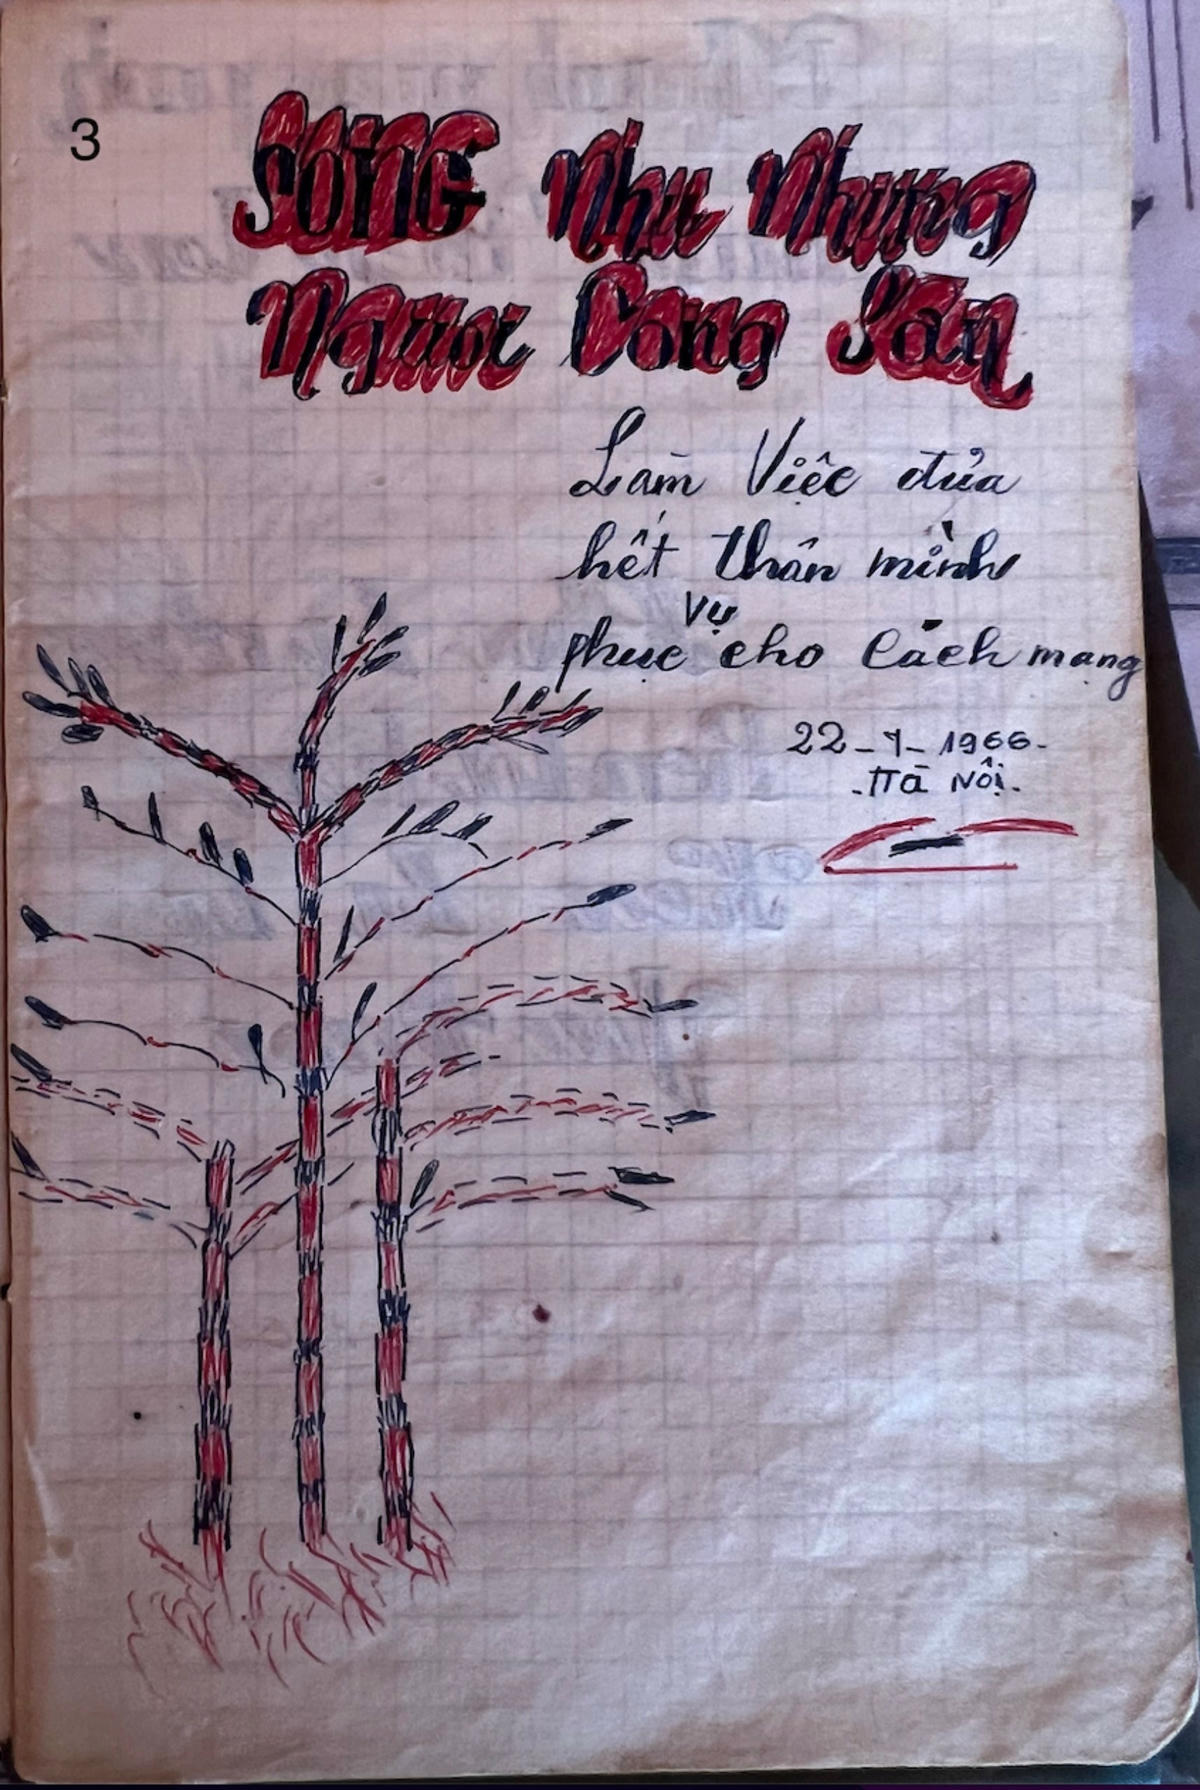 3
SỐNG Như Những
Người Cộng Sản
Làm Việc đủa
hết thân mình
phục vụ cho Cách mạng
22-7-1966-
-Hà Nội-